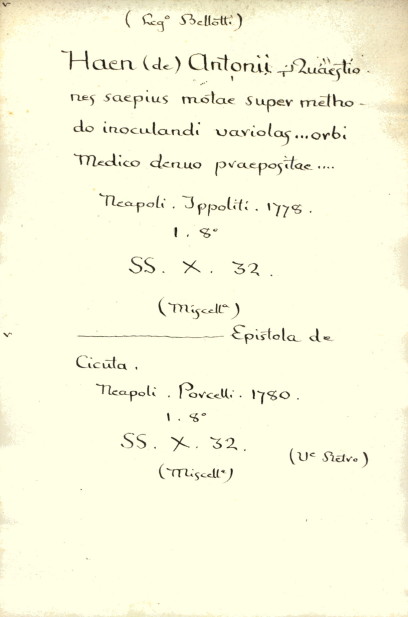 (Leg° Bellotti)
Haen (de) Antonii; Quaestio-
nes saepius motae super metho-
do inoculandi variolas...orbi
Medico denuo praepositae....
Neapoli. Ippoliti. 1778.
1. 8°
SS. X. 32.
(Miscellª)
——— Epistola de
Cicuta.
Neapoli. Porcelli. 1780.
1. 8°
SS. X. 32.
(Vᵉ Retro)
(Miscellª)